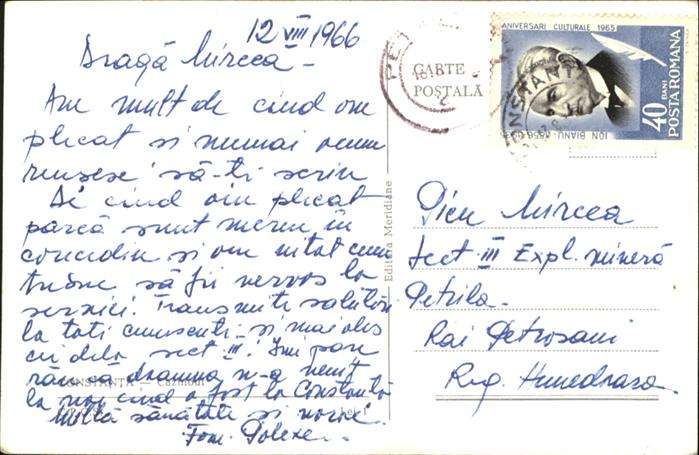 12 VIII 1966
Dragă Mircea -
Am mult de cînd am
plicat si numai acum
reusesc să-ti scriu
De cînd am plicat
parcă sunt mereu în
concediu si am uitat cum
trebue să fii nervos la
servici. Transmite salutări
la toti cunoscuti si mai ales
cu dela sect III. Imi pare
rău că doamna n-a venit
la noi cînd a fost la Constanta
Multă sănătate si noroc
Fam.
CONSTANŢA - Cazinoul
Editura Meridiane
CARTE
POŞTALĂ
ANIVERSARI CULTURALE 1965
ION BIANU 1856
40 BANI
POSTA ROMANA
CONSTANŢA
Dicu Mircea
Sect III Expl. minieră
Petrila -
Rai Petrosani
Reg. Hunedoara